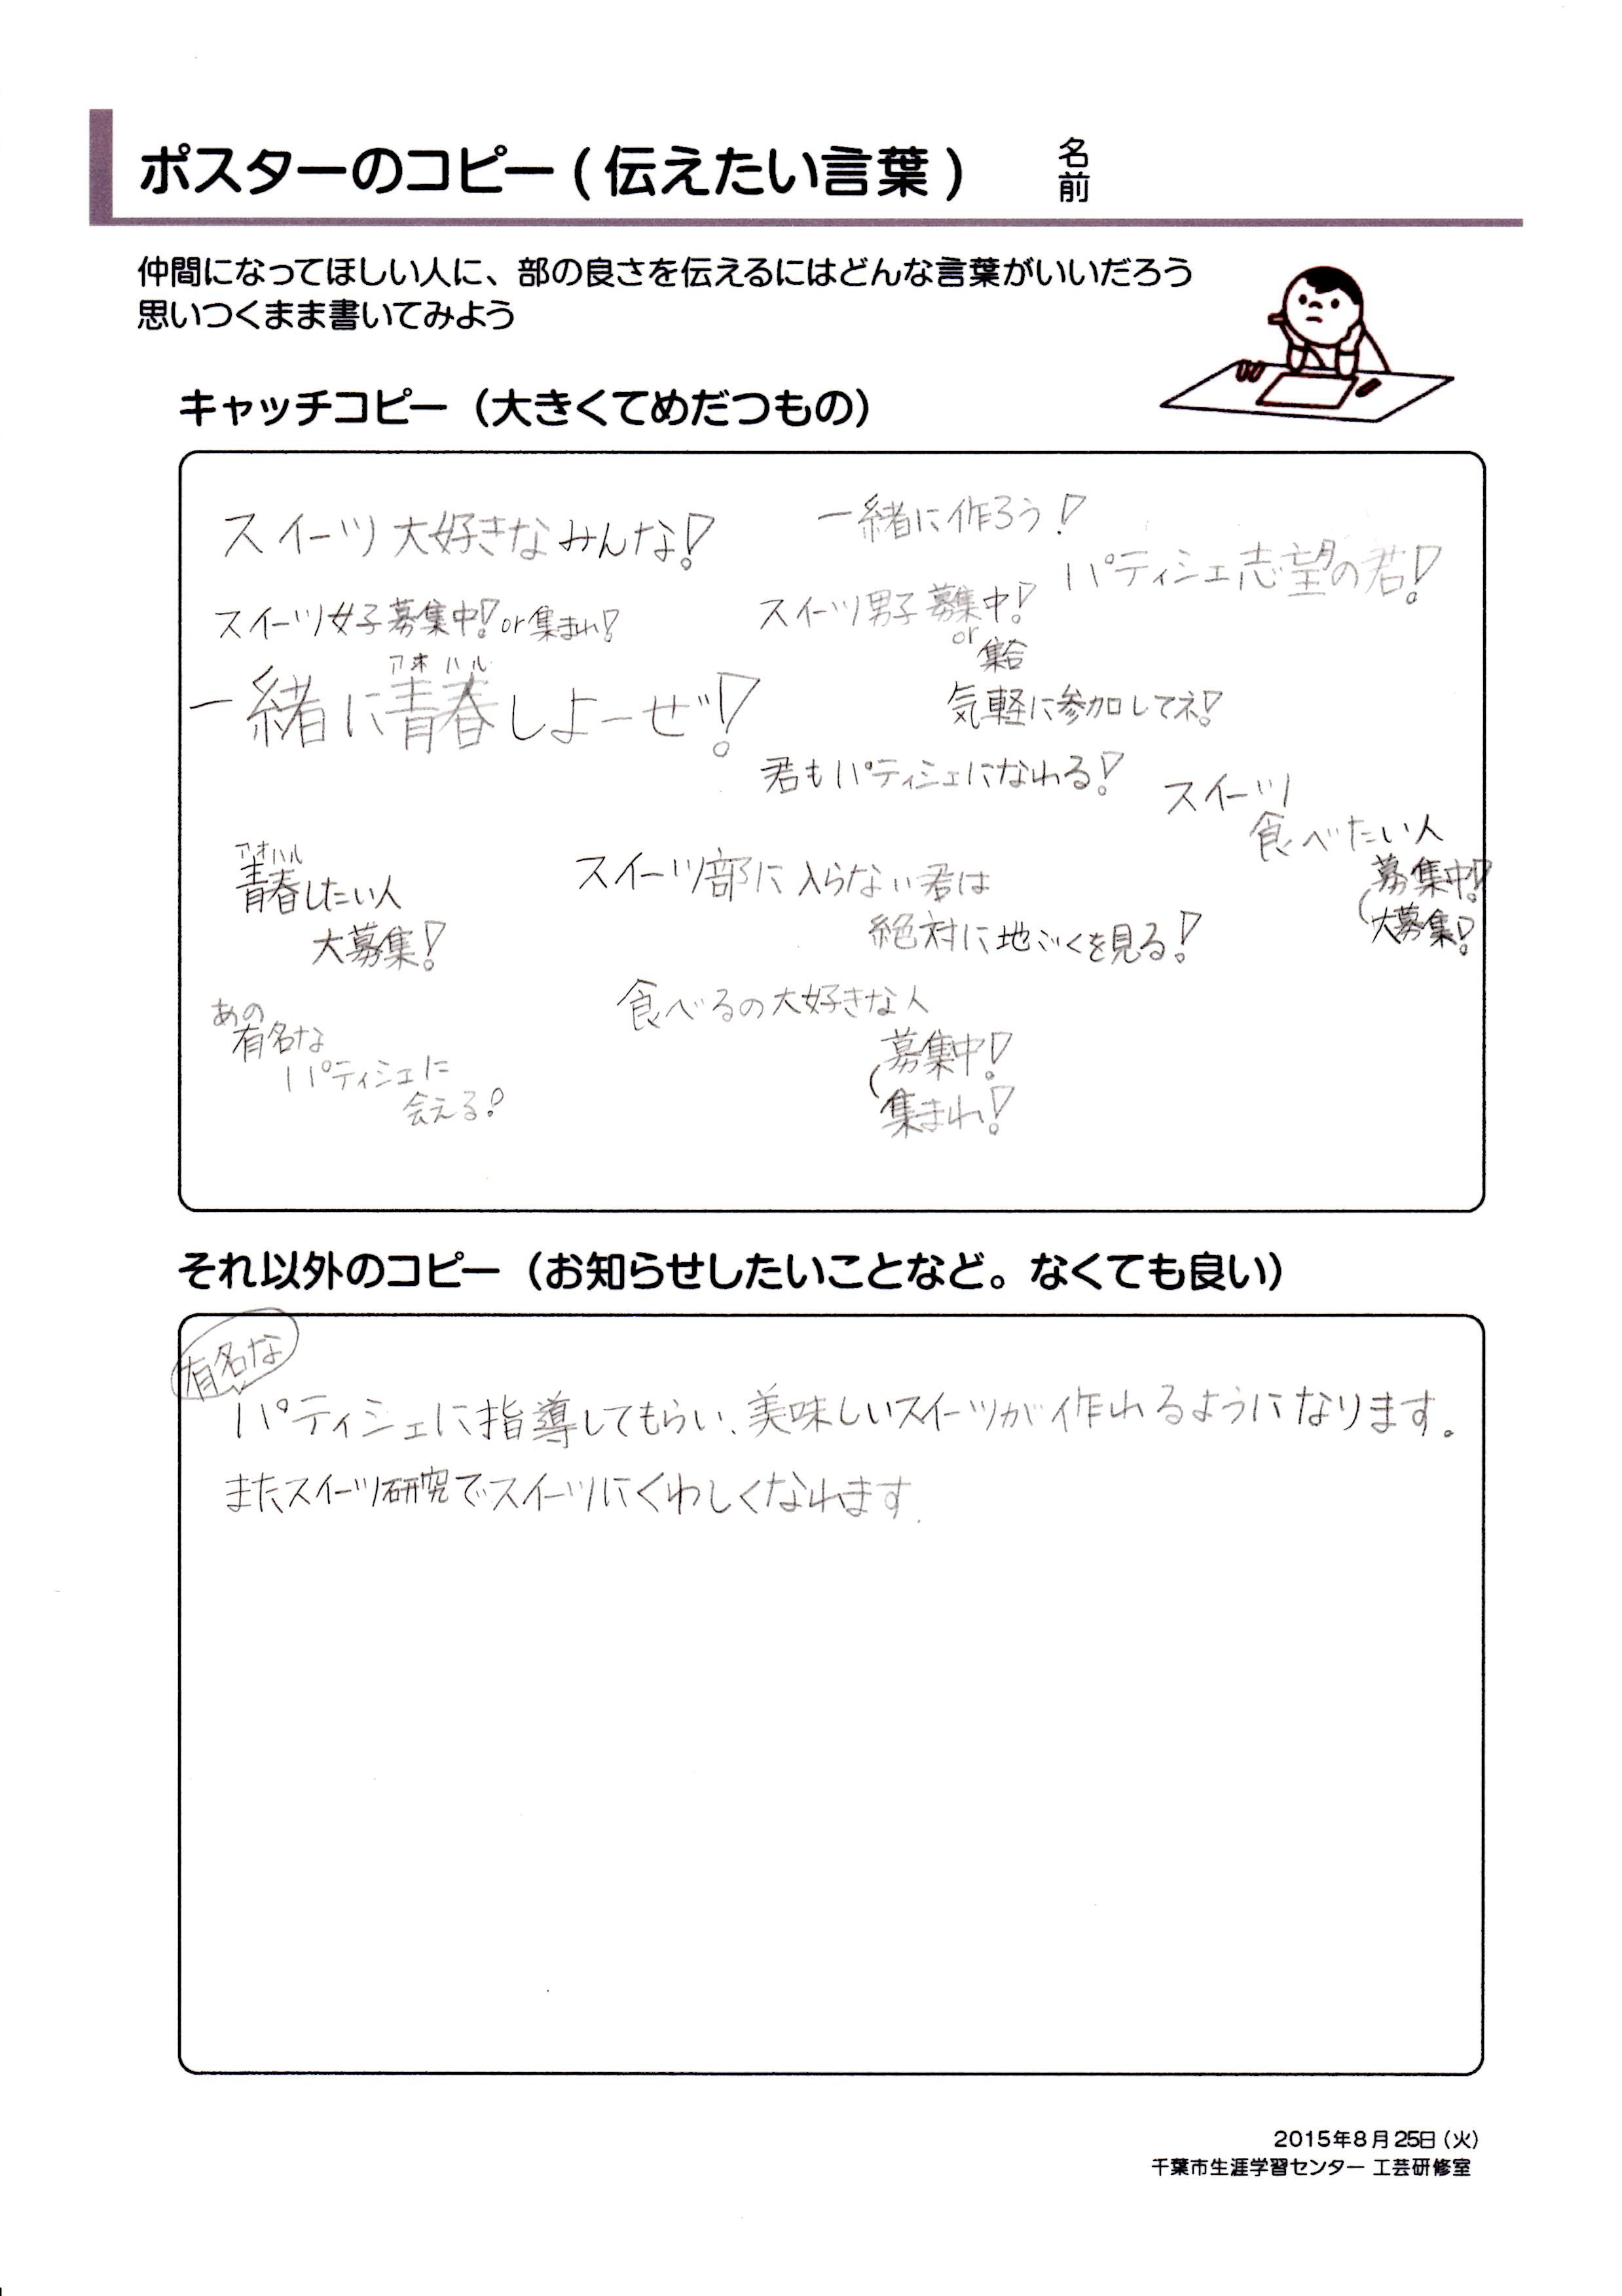 ポスターのコピー(伝えたい言葉)
名前
仲間になってほしい人に、部の良さを伝えるにはどんな言葉がいいだろう
思いつくまま書いてみよう
キャッチコピー(大きくてめだつもの)
スイーツ大好きなみんな!
一緒に作ろう!
パティシェ志望の君!
スイーツ女子募集中! or 集まれ!
スイーツ男子募集中!
or
集合
アオハル
一緒に青春しよーぜ!
気軽に参加してネ!
君もパティシェになれる!
スイーツ
食べたい人
募集中!
(大募集!
アオハル
青春したい人
大募集!
スイーツ部に入らない君は
絶対に地ごくを見る!
あの
有名な
パティシェに
会える!
食べるの大好きな人
募集中!
(集まれ!
それ以外のコピー(お知らせしたいことなど。なくても良い)
有名な
パティシェに指導してもらい、美味しいスイーツが作れるようになります。
またスイーツ研究でスイーツにくわしくなれます.
2015年8月25日(火)
千葉市生涯学習センター 工芸研修室